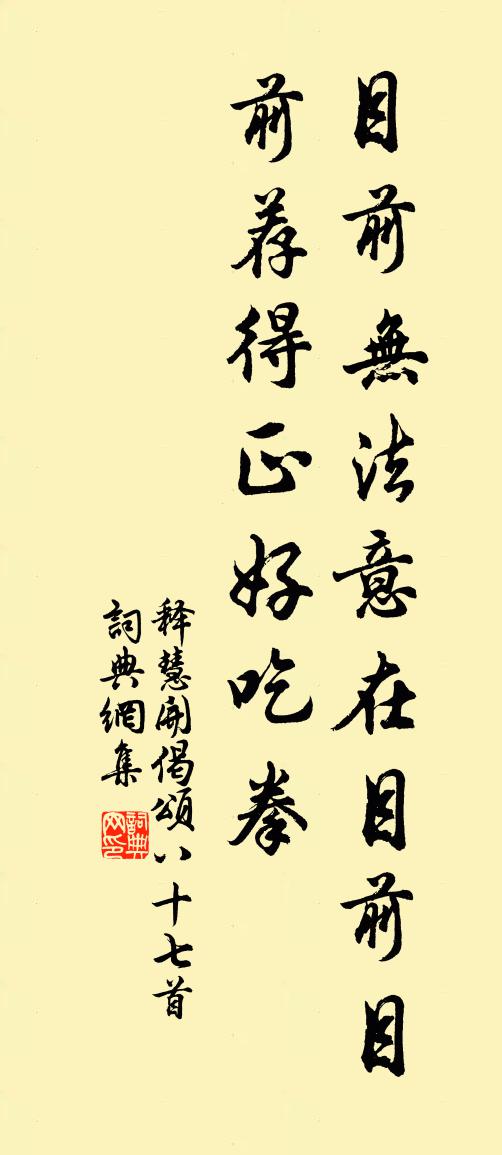 目前無法意在目前目
前荐得正好吃拳
释慧開偈頌八十七首
詞典網集
詞典網印